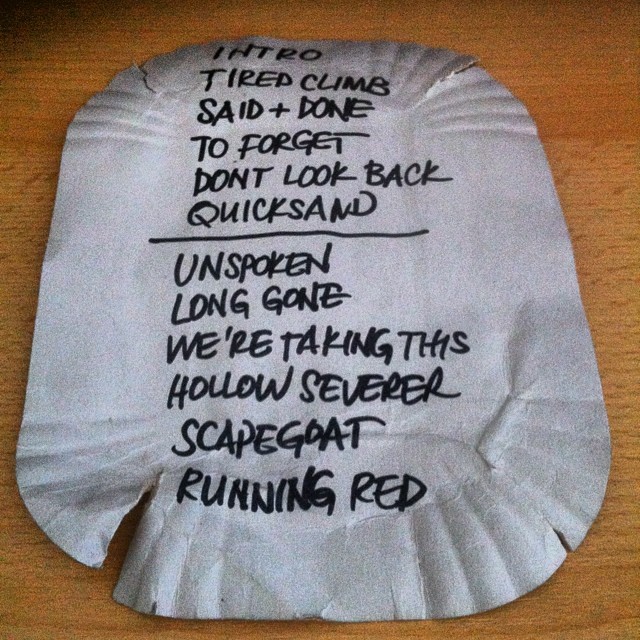 INTRO
TIRED CLIMB
SAID + DONE
TO FORGET
DONT LOOK BACK
QUICKSAND
UNSPOKEN
LONG GONE
WE'RE TAKING THIS
HOLLOW SEVERER
SCAPEGOAT
RUNNING RED